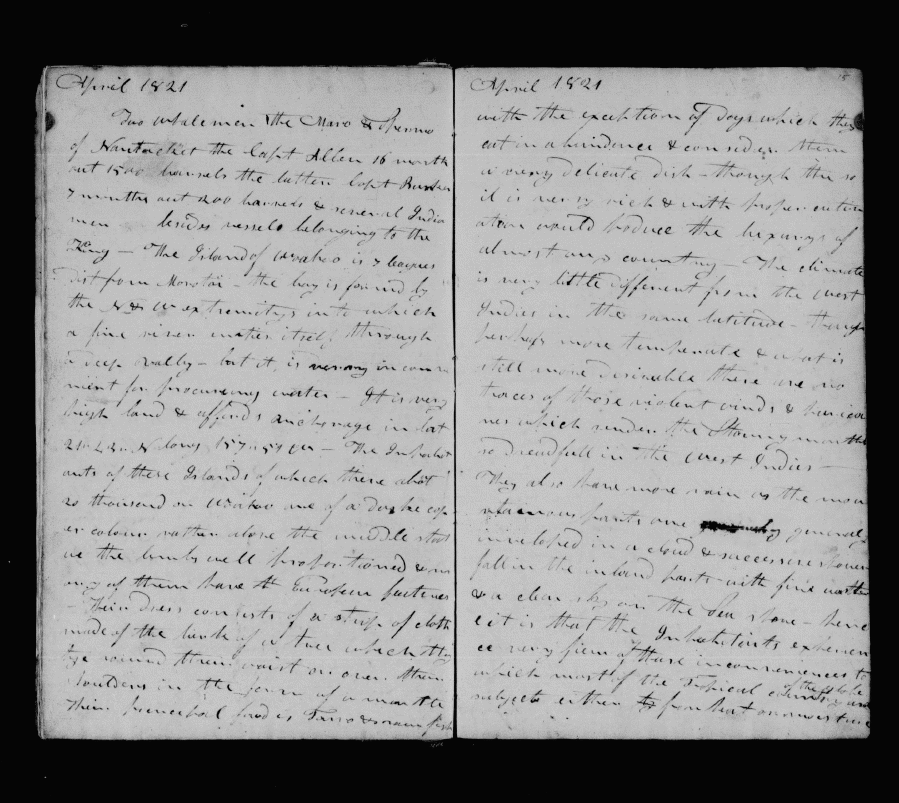 April 1821
Two whalemen the Maro & Thermo
of Nantucket the Capt Allen 16 month
out 1500 barrels the latter Capt
7 months out 200 barrels & several India
men besides vessels belonging to the
King — The Island of Woahoo is 7 leagues
Dist from Morotai — the bay is formed by
the N & W extremitys into which
a fine river emties itself through
a deep vally — but it is very in conve
ment for procureing water — It is very
high land & affords anchorage in lat
N long 157 W — The Inhabit
ants of these Islands of which there abot
20 thousand on Woahoo are of a darke cop
er colour rather above the middle stat
ue the limbs well propotioned & m
any of them have the European features
Their dress consists of a strip of cloth
made of the bark of a tree which they
tye round their waist or over their
shoulders in the form of a mantle
Their principal food is Tarro & raw fish
April 1821
with the exception of Dogs which they
eat in abundence & consider them
a very delicate dish — though the so
il is very rich & with proper cultiv
ation would produce the luxurys of
almost any country — The climate
is very little different from the West
Indies in the same latitude — though
perhaps more temperate & what is
still more desireable there are no
traces of those violent winds & hurica
nes which render the Stormy months
so dreadfull in the West Indies —
They also have more rain as the mou
ntainous parts are generaly
inveloped in a cloud & successive showers
fall in the inland parts with fine weather
& a clear sky on the Sea shore — hence
it is that the Inhabitants experien
ce very few of those inconveniences to
which most of the Tropical
of the globe are
subject either from heat or moisture